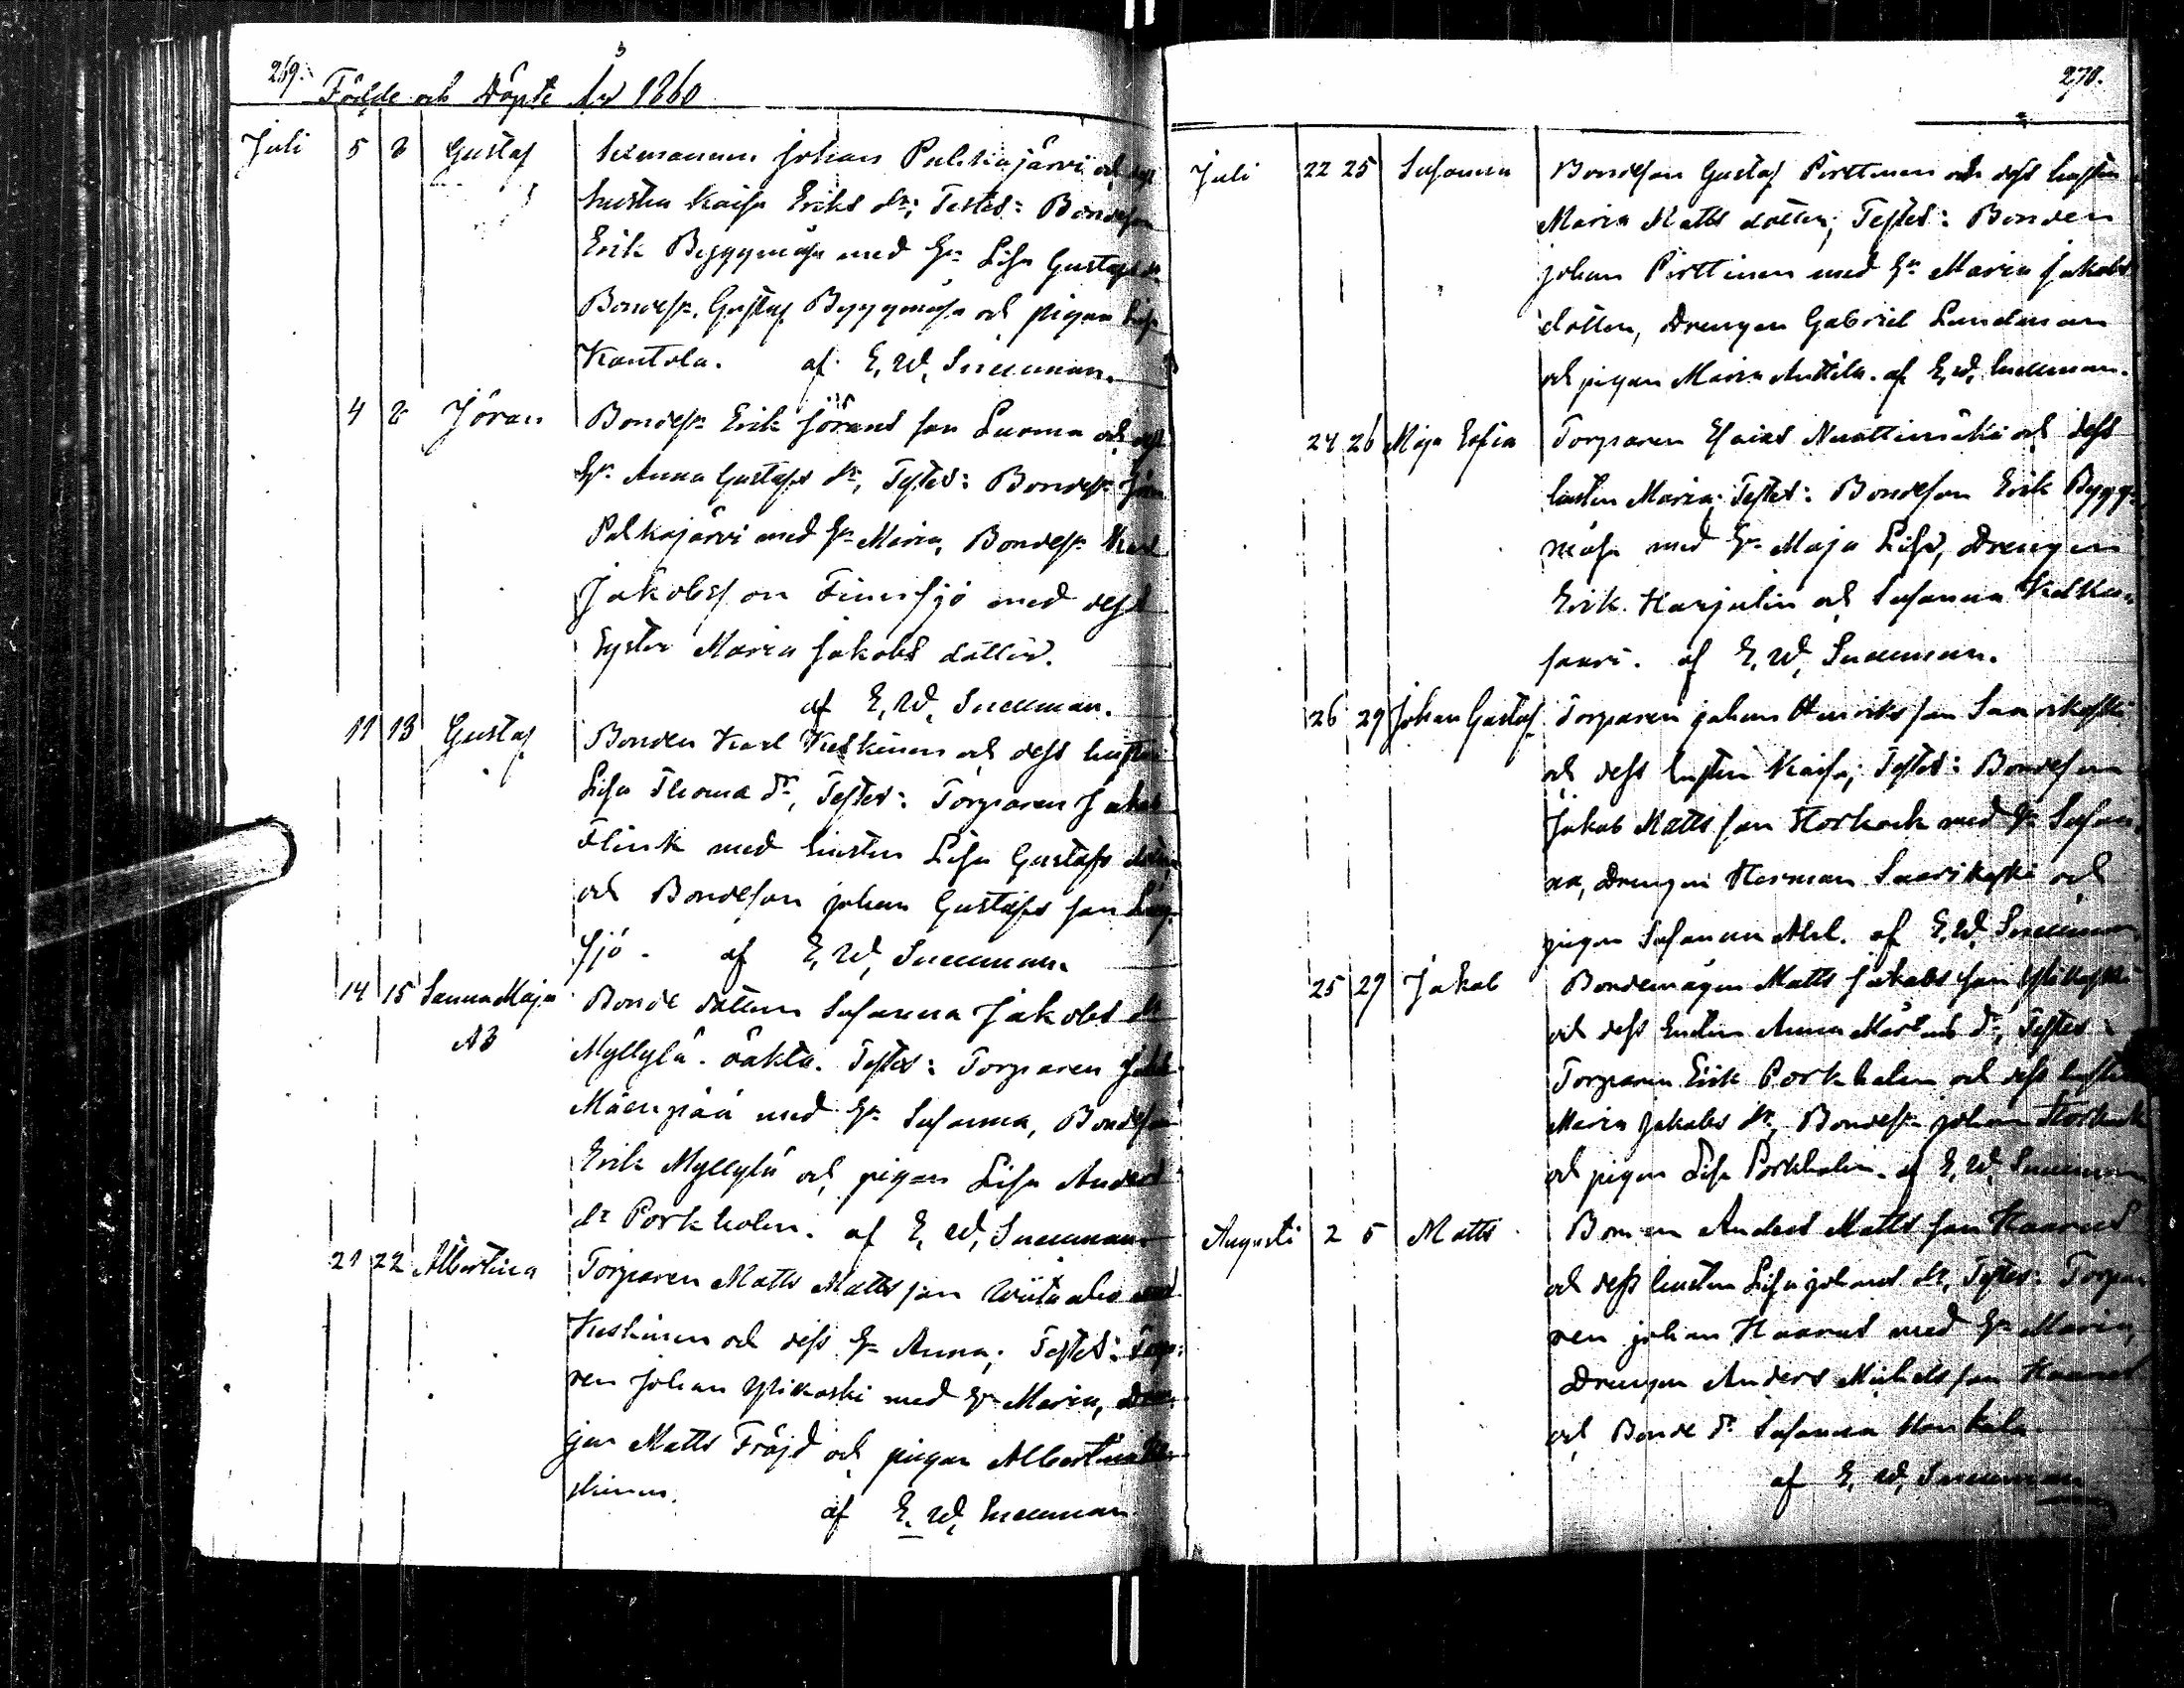 269.
Födde och Döpte År 1860
Juli 5 8 Gustaf Johan Palkajärvi och dess
hustru Kaisa Eriks dr; Testes: Bondeson
Erik Byggmäsa med Hu Lisa Gustafs dr
Bondes. Gustaf Byggmäsa och pigan Lisa
Kantola. af E. W. Snellman.
4 8 Jöran Bondes. Erik Jörans son Luoma och dess
Hu Anna Gustafs dr, Testes: Bondes. Jöran
Palkajärvi med Hu Maria, Bondes. Karl
Jakobsson Finnsjö med dess
Syster Maria Jakobs dotter.
af E. W. Snellman.
11 13 Gustaf Bonden Karl Keskinen och dess hustru
Lisa Thomae dr, Testes: Torparen Jakob
Flink med hustru Lisa Gustafs dotter
och Bondeson Johan Gustafs son Lång-
sjö. af E. W. Snellman.
14 15 Sanna Maja Bonde dottern Susanna Jakobs dr
Myllylä. oäkta. Testes: Torparen
Mäenpää med Hu Susanna, Bondeson
Erik Myllylä och pigan Lisa Anders
dr Porkholm. af E. W. Snellman
21 22 Albertina Torparen Matts Matts son Wiitaaho
Keskinen och dess Hu Anna; Testes: Torpa-
ren Johan Ylikoski med Hu Maria, Drän-
gen Matts Fröjd och pigan Albertina Ke-
skinen. af E. W. Snellman
270.
Juli 22 25 Susanna Bondeson Gustaf Pirttinen och dess hustru
Maria Matts dotter; Testes: Bonden
Johan Pirttinen med Hu Maria Jakobs
dotter, Drengen Gabriel Lundman
och pigan Maria Anttila. af E. W. Snellman.
24 26 Maja Sofia Torparen Esaias Nuattimäki och dess
hustru Maria; Testes: Bondeson Erik Bygg-
mäsa med Hu Maja Lisa, Drengen
Erik Harjulin och Susanna
saari. af E. W. Snellman.
26 29 Johan Gustaf Torparen Johan Henriks son Saarikoski
och dess hustru Kaisa; Testes: Bondeson
Jakob Matts son Storback med Hu Susan-
na, Drengen Herman Saarikoski och
pigan Susanna Ahl. af E. W. Snellman.
25 29 Jakob Bondemågen Matts Jakobs son Ylikoski
och dess hustru Anna Mårtens dr, Testes:
Torparen Erik Porkholm och dess hustru
Maria Jakobs dr, Bondes. Johan Storback
och pigan Lisa Porkholm. af E. W. Snellman
Augusti 2 5 Matts Bonden Anders Matts son Haarus
och dess hustru Lisa Johans dr, Testes: Torpa-
ren Johan Haarus med Hu Maria,
Drengen Anders Michels son Haarus
och Bonde dr Susanna Honkala.
af E. W. Snellman